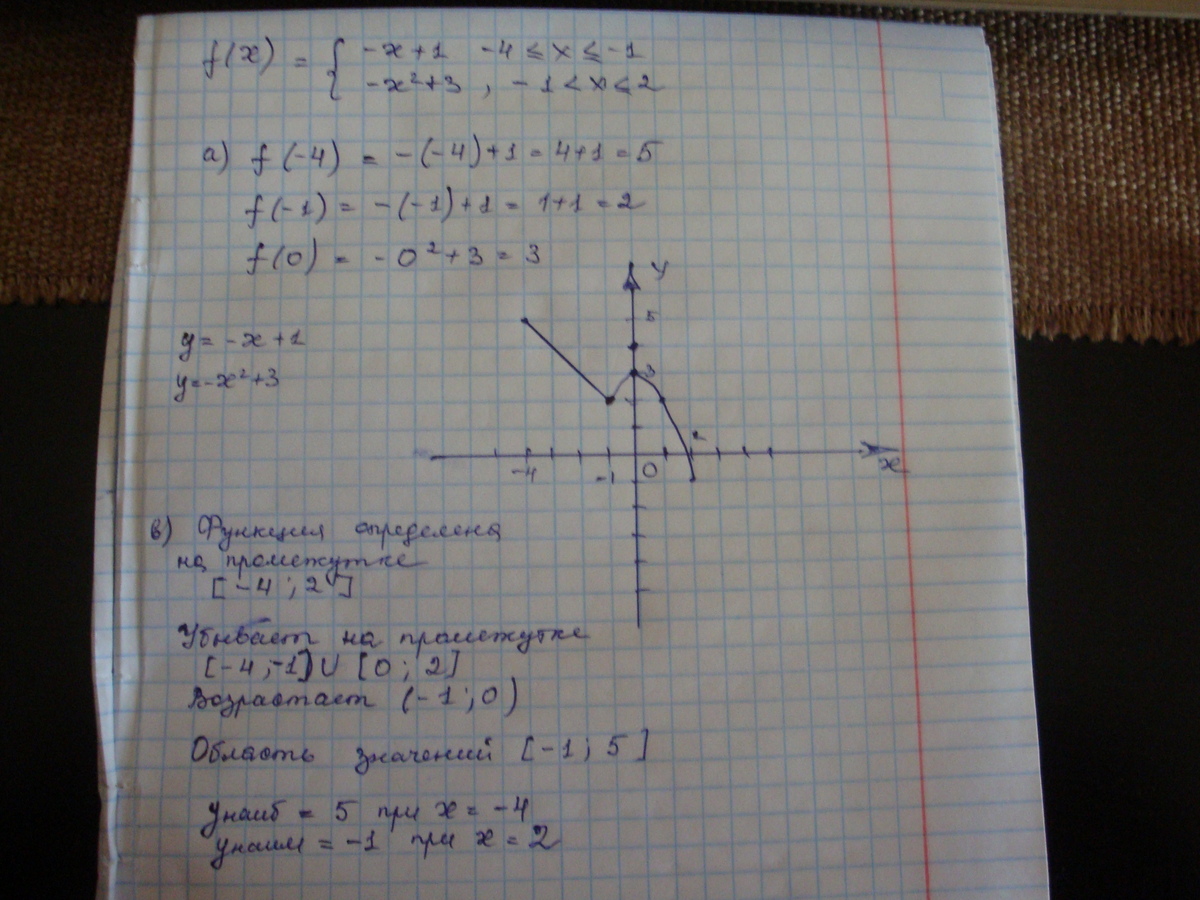 f(x) = { -x+1 -4 ≤ x ≤ -1
-x²+3 , -1 < x ≤ 2
а) f(-4) = -(-4)+1 = 4+1 = 5
f(-1) = -(-1)+1 = 1+1 = 2
f(0) = -0²+3 = 3
y
5
y = -x+1
3
y = -x²+3
-4 -1 0 x
в) Функция определена
на промежутке
[-4 ; 2]
Убывает на промежутке
[-4 ; -1] ∪ [0 ; 2]
Возрастает (-1 ; 0)
Область значений [-1 ; 5]
yнаиб = 5 при x = -4
yнаим = -1 при x = 2